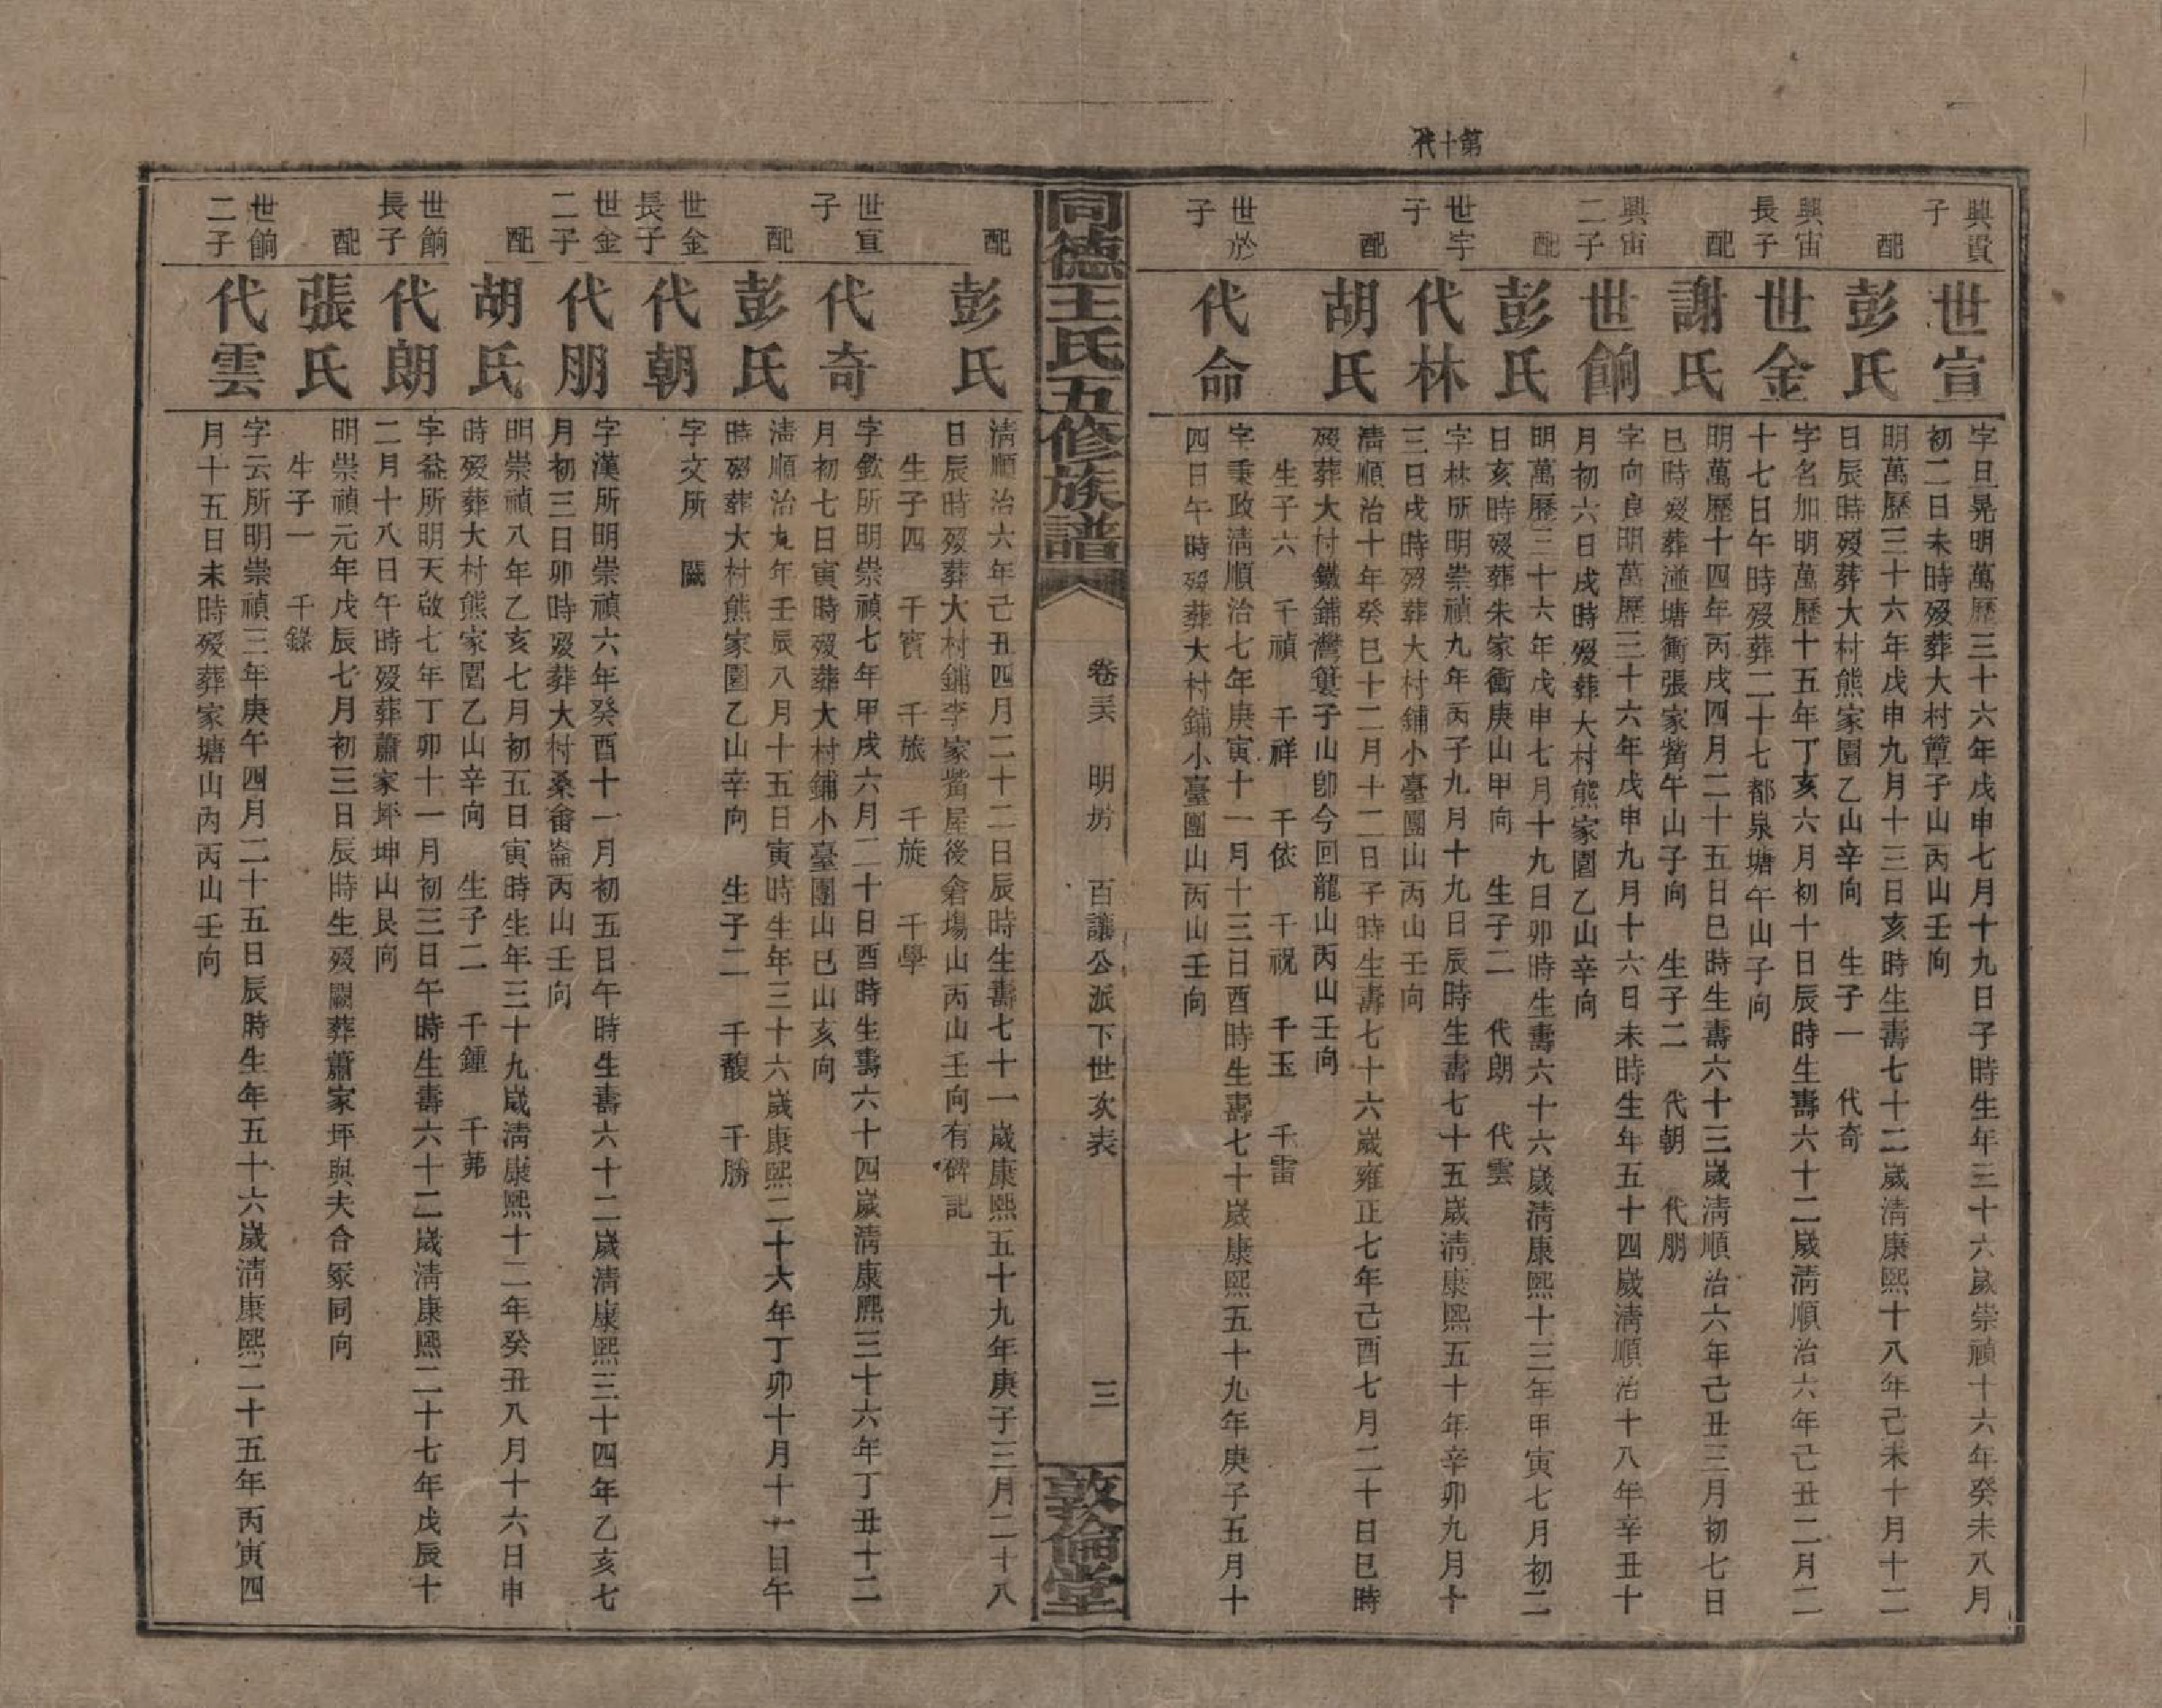 第十代
興貫子
世宣
字旦晃明萬歷三十六年戊申七月十九日子時生年三十六歲崇禎十六年癸未八月
初二日未時歿葬大村簟子山丙山壬向
配
彭氏
明萬歷三十六年戊申九月十三日亥時生壽七十二歲清康熙十八年己未十月十二
日辰時歿葬大村熊家園乙山辛向 生子一 代奇
興宙長子
世金
字名加明萬歷十五年丁亥六月初十日辰時生壽六十二歲清順治六年己丑二月二
十七日午時歿葬二十七都泉塘午山子向
配
謝氏
明萬歷十四年丙戌四月二十五日巳時生壽六十三歲清順治六年己丑三月初七日
巳時歿葬湴塘衝張家觜午山子向 生子二 代朝 代朋
興宙二子
世餉
字向良明萬歷三十六年戊申九月十六日未時生年五十四歲清順治十八年辛丑十
月初六日戌時歿葬大村熊家園乙山辛向
配
彭氏
明萬歷三十六年戊申七月十九日卯時生壽六十六歲清康熙十三年甲寅七月初二
日亥時歿葬朱家衝庚山甲向 生子二 代朗 代雲
世宇子
代林
字林所明崇禎九年丙子九月十九日辰時生壽七十五歲清康熙五十年辛卯九月十
三日戌時歿葬大村鋪小臺團山丙山壬向
配
胡氏
清順治十年癸巳十二月十二日子時生壽七十六歲雍正七年己酉七月二十日巳時
歿葬大村鐵鋪灣簍子山卽今回龍山丙山壬向
生子六 千禎 千祥 千依 千祝 千玉 千雷
世於子
代命
字秉政清順治七年庚寅十一月十三日酉時生壽七十歲康熙五十九年庚子五月十
四日午時歿葬大村鋪小臺團山丙山壬向
同德王氏五修族譜
卷三六 明房 百讓公派下世次表
三
敦倫堂
配
彭氏
清順治六年己丑四月二十二日辰時生壽七十一歲康熙五十九年庚子三月二十八
日辰時歿葬大村鋪李家觜屋後倉塲山丙山壬向有碑記
生子四 千賓 千旅 千旋 千學
世宣子
代奇
字欽所明崇禎七年甲戌六月二十日酉時生壽六十四歲清康熙三十六年丁丑十二
月初七日寅時歿葬大村鋪小臺團山巳山亥向
配
彭氏
清順治九年壬辰八月十五日寅時生年三十六歲康熙二十六年丁卯十月十一日午
時歿葬大村熊家園乙山辛向 生子二 千馥 千勝
世金長子
代朝
字文所 闕
世金二子
代朋
字漢所明崇禎六年癸酉十一月初五日午時生壽六十二歲清康熙三十四年乙亥七
月初三日卯時歿葬大村桑畬崙丙山壬向
配
胡氏
明崇禎八年乙亥七月初五日寅時生年三十九歲清康熙十二年癸丑八月十六日申
時歿葬大村熊家園乙山辛向 生子二 千鍾 千茀
世餉長子
代朗
字益所明天啟七年丁卯十一月初三日午時生壽六十二歲清康熙二十七年戊辰十
二月十八日午時歿葬蕭家坪坤山艮向
配
張氏
明崇禎元年戊辰七月初三日辰時生歿闕葬蕭家坪與夫合冢同向
生子一 千錄
世餉二子
代雲
字云所明崇禎三年庚午四月二十五日辰時生年五十六歲清康熙二十五年丙寅四
月十五日未時歿葬家塘山內丙山壬向